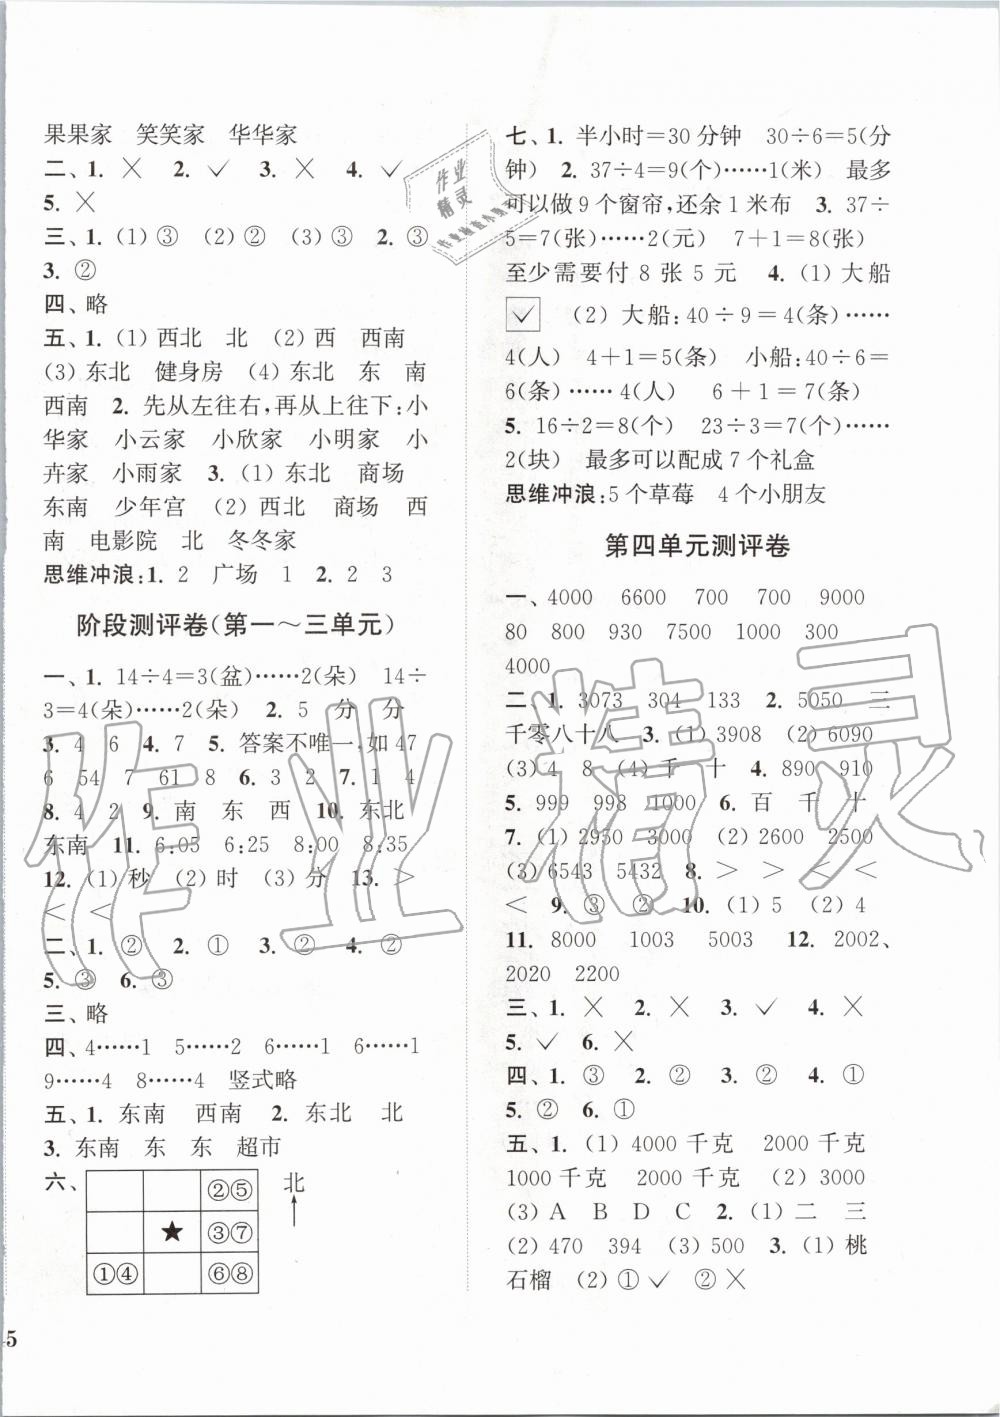 果果家 笑笑家 华华家
二、1. ✕ 2. ✓ 3. ✕ 4. ✓
5. ✕
三、1. (1) ③ (2) ② (3) ③ 2. ③
3. ②
四、略
五、1. (1) 西北 北 (2) 西 西南
(3) 东北 健身房 (4) 东北 东 南
西南 2. 先从左往右,再从上往下:小
华家 小云家 小欣家 小明家 小
卉家 小雨家 3. (1) 东北 商场
东南 少年宫 (2) 西北 商场 西
南 电影院 北 冬冬家
思维冲浪:1. 2 广场 1 2. 2 3
阶段测评卷(第一～三单元)
一、1. 14÷4=3(盆)……2(朵) 14÷
3=4(朵)……2(朵) 2. 5 分 分
3. 4 6 4. 7 5. 答案不唯一,如 47
6 54 7 61 8 6. 3 2 7. 1 4
8. 4 2 9. 南 东 西 10. 东北
东南 11. 6:05 6:25 8:00 8:35
12. (1) 秒 (2) 时 (3) 分 13. >
< <
二、1. ② 2. ① 3. ② 4. ②
5. ③ 6. ③
三、略
四、4……1 5……2 6……1 6……1
9……4 8……4 竖式略
五、1. 东南 西南 2. 东北 北
3. 东南 东 东 超市
六、
②⑤
★ ③⑦
①④ ⑥⑧
北
5
七、1. 半小时=30 分钟 30÷6=5(分
钟) 2. 37÷4=9(个)……1(米) 最多
可以做 9 个窗帘,还余 1 米布 3. 37÷
5=7(张)……2(元) 7+1=8(张)
至少需要付 8 张 5 元 4. (1) 大船
✓ (2) 大船:40÷9=4(条)……
4(人) 4+1=5(条) 小船:40÷6=
6(条)……4(人) 6+1=7(条)
5. 16÷2=8(个) 23÷3=7(个)……
2(块) 最多可以配成 7 个礼盒
思维冲浪:5 个草莓 4 个小朋友
第四单元测评卷
一、4000 6600 700 700 9000
80 800 930 7500 1000 300
4000
二、1. 3073 304 133 2. 5050 三
千零八十八 3. (1) 3908 (2) 6090
(3) 4 8 (4) 千 十 4. 890 910
5. 999 998 1000 6. 百 千 十
7. (1) 2950 3000 (2) 2600 2500
(3) 6543 5432 8. > > < <
< 9. ③ ② 10. (1) 5 (2) 4
11. 8000 1003 5003 12. 2002、
2020 2200
三、1. ✕ 2. ✕ 3. ✓ 4. ✕
5. ✓ 6. ✕
四、1. ③ 2. ② 3. ② 4. ①
5. ② 6. ①
五、1. (1) 4000 千克 2000 千克
1000 千克 2000 千克 (2) 3000
(3) A B D C 2. (1) 二 三
(2) 470 394 (3) 500 3. (1) 桃
石榴 (2) ① ✓ ② ✕
作业精灵
作业
精灵